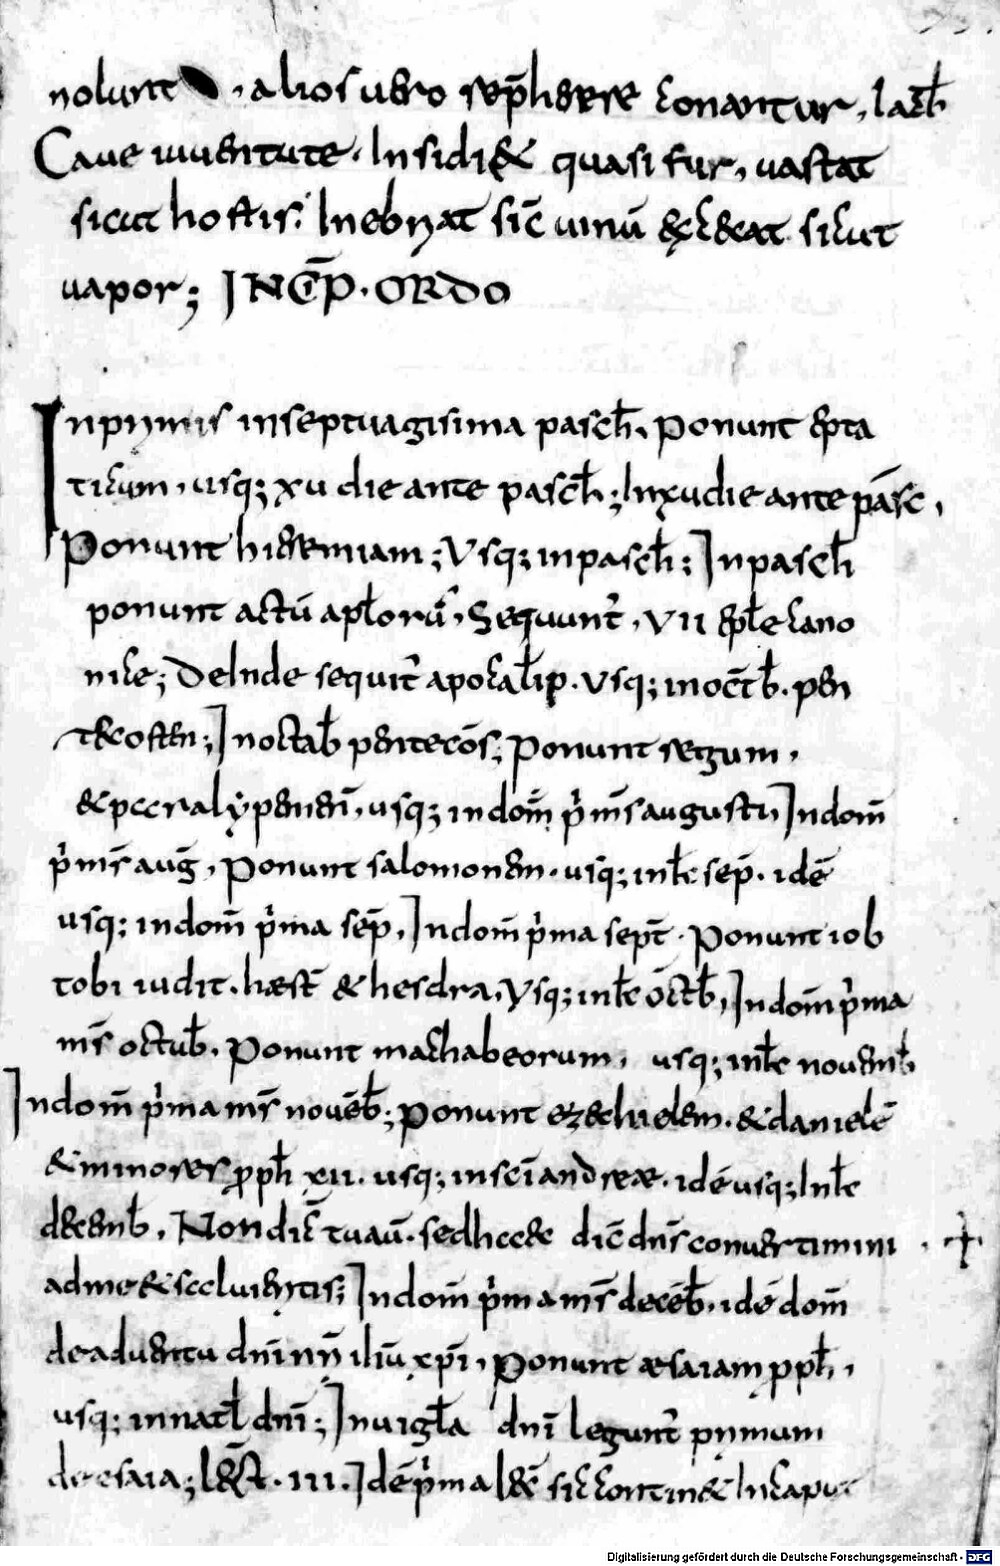 nolunt , alios uero rep̄hendere conantur, Iacƀ
Caue iuuentute. Insidi& quasi fur, uastat
sicut hostis. Inebriat sic̄ uinū &c&eat sicut
uapor; INCP̄. ORDO
Inprimis inseptuagisima pasch̄, Ponunt epta
ticum, usq; xu die ante pasch̄; Inxudie ante pās̄c,
Ponunt hieremiam; Vsq; inpasch̄; Inpasch̄
ponunt actū apl̄orū, Sequunt̄, VII epl̄e cano
nice; DeInde sequit̄ apocal̄ip. Vsq; inoct̄b. pen
tecosten; Inoctab̄ pentecōs; Ponunt regum,
&paralypenen̄, usq; indom̄ p̄ mſ̄ augusti, Indom̄
p̄ mſ̄ auḡ, Ponunt salomonem. usq; inkl̄ sep̄. idē
usq; indom̄ p̄ma sep̄, Indom̄ p̄ma sept̄. Ponunt iob
tobi iudit. hæst̄ & hesdra, Vsq; inkl̄ octb̄, Indom̄ p̄ma
mſ̄ octub̄. Ponunt machabeorum, usq; inkl̄ nouemb̄
Indom̄ p̄ma mſ̄ nouēb̄; Ponunt ezechielem. &danielē
&minores p̄ph̄ xii. usq; insc̄i andreæ. idē usq; Inkl̄
decemb̄. Nondic̄ tuaū. sedhaec dic̄ dn̄s conuertimini +
adme&saluieritis; Indom̄ p̄ma mſ̄ decēb̄. idē dom̄
deaduentu dn̄i nr̄i ihū xp̄i, Ponunt æsaiam p̄ph̄,
usq; innatl̄ dn̄i; Inuigl̄a dn̄i legunt̄ primum
deesaia; l&̄. III. Idē p̄ma l&̄ sic̄ contin& Incaput
Digitalisierung gefördert durch die Deutsche Forschungsgemeinschaft - DFG